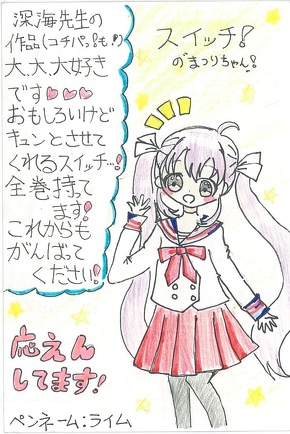 深海先生の
作品(コチパっ!も♪)
大、大、大好き
です♡♡♡
おもしろいけど
キュンとさせて
くれるスイッチ…!
全巻持て
ます!
これからも
がんばって
ください!
スイッチ!
のまつりちゃん!
応えん
してます!
ペンネーム:ライム